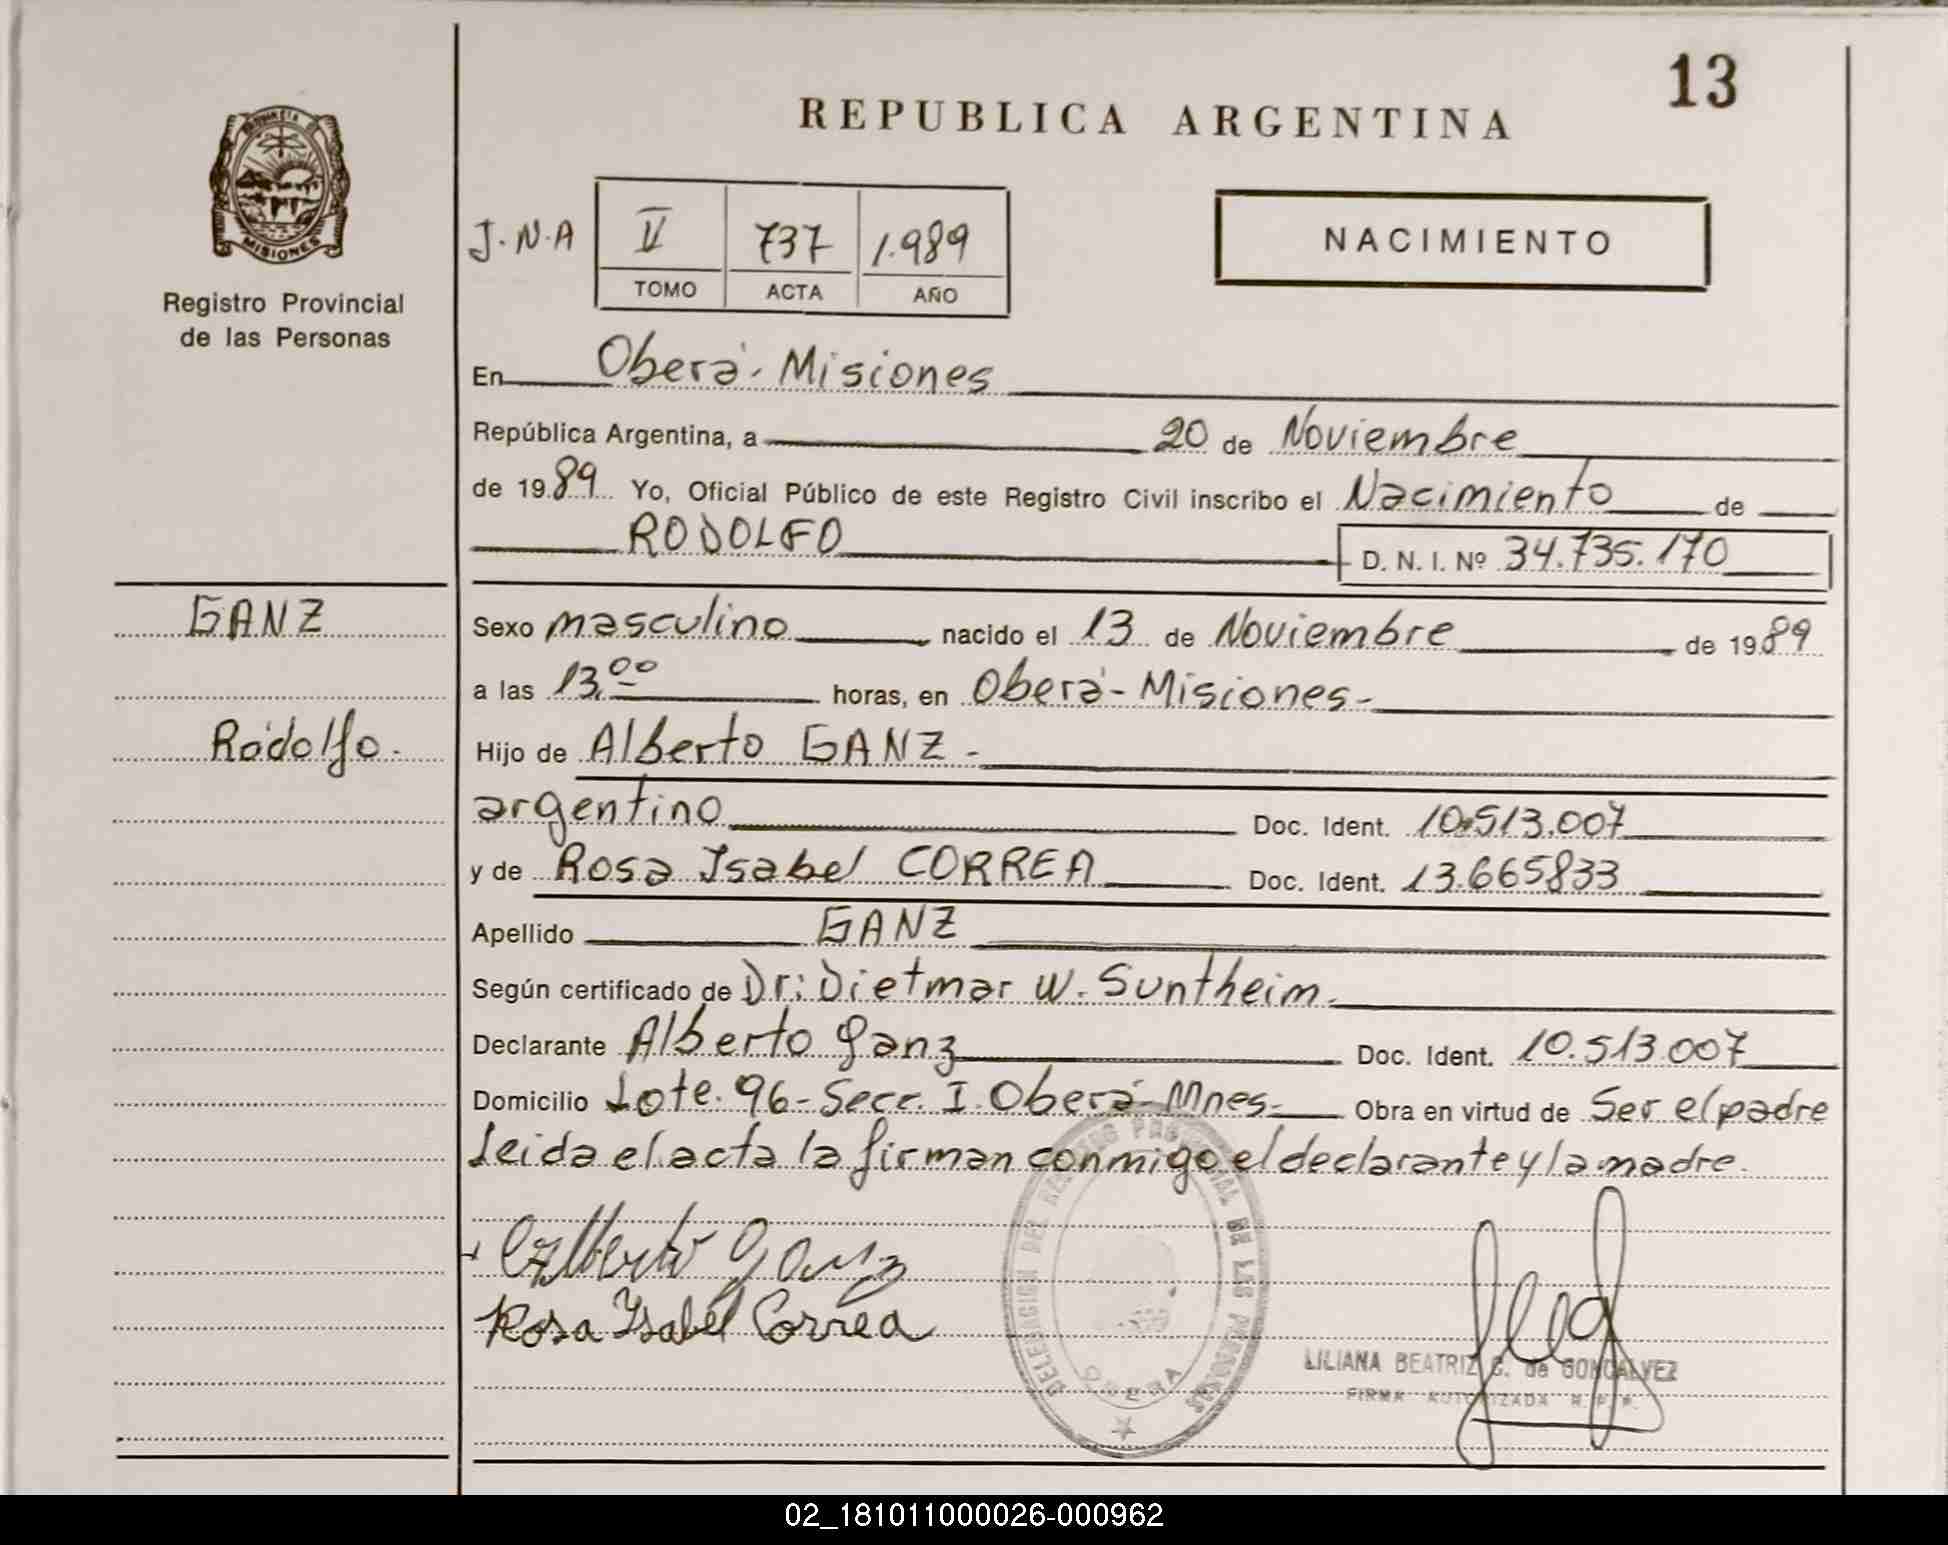 13
REPUBLICA ARGENTINA
MISIONES
Registro Provincial
de las Personas
J.N.A
II 737 1.989
TOMO ACTA AÑO
NACIMIENTO
En Oberá-Misiones
República Argentina, a 20 de Noviembre
de 1989 Yo, Oficial Público de este Registro Civil inscribo el Nacimiento de
RODOLFO D. N. I. Nº 34.735.170
GANZ
Rodolfo.-
Sexo masculino nacido el 13 de Noviembre de 1989
a las 13,00 horas, en Oberá-Misiones-
Hijo de Alberto GANZ-
argentino Doc. Ident. 10.513.007
y de Rosa Isabel CORREA Doc. Ident. 13.665833
Apellido GANZ
Según certificado de Dr: Dietmar W. Suntheim.
Declarante Alberto Ganz Doc. Ident. 10.513.007
Domicilio Lote. 96-Secc. I. Oberá-Mnes- Obra en virtud de Ser el padre
Leida el acta la firman conmigo el declarante y la madre.
Alberto Ganz
Rosa Isabel Correa
DELEGACION DEL REGISTRO PROVINCIAL DE LAS PERSONAS
OBERA
LILIANA BEATRIZ G. de GONCALVEZ
FIRMA AUTORIZADA R. P. P.
02_181011000026-000962